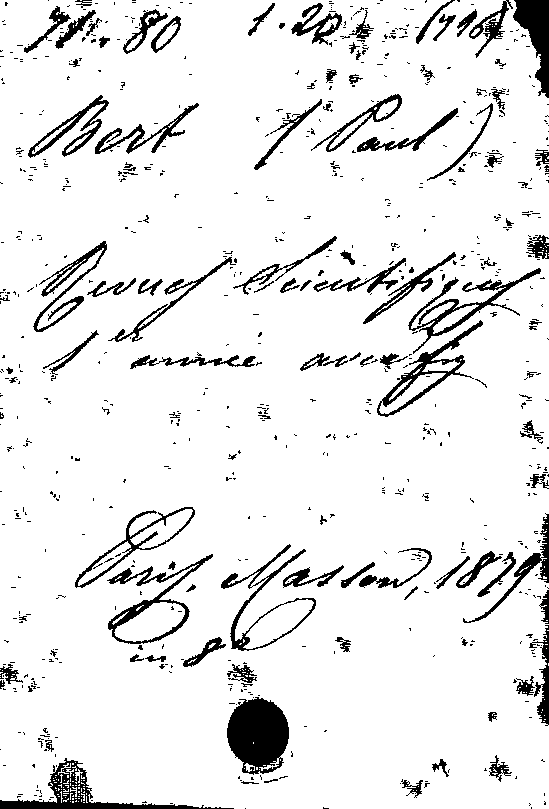 80 1.20 (796)
Bert (Paul)
Revues Scientifiques
1er année avec fig
Paris, Masson, 1879
in 8o